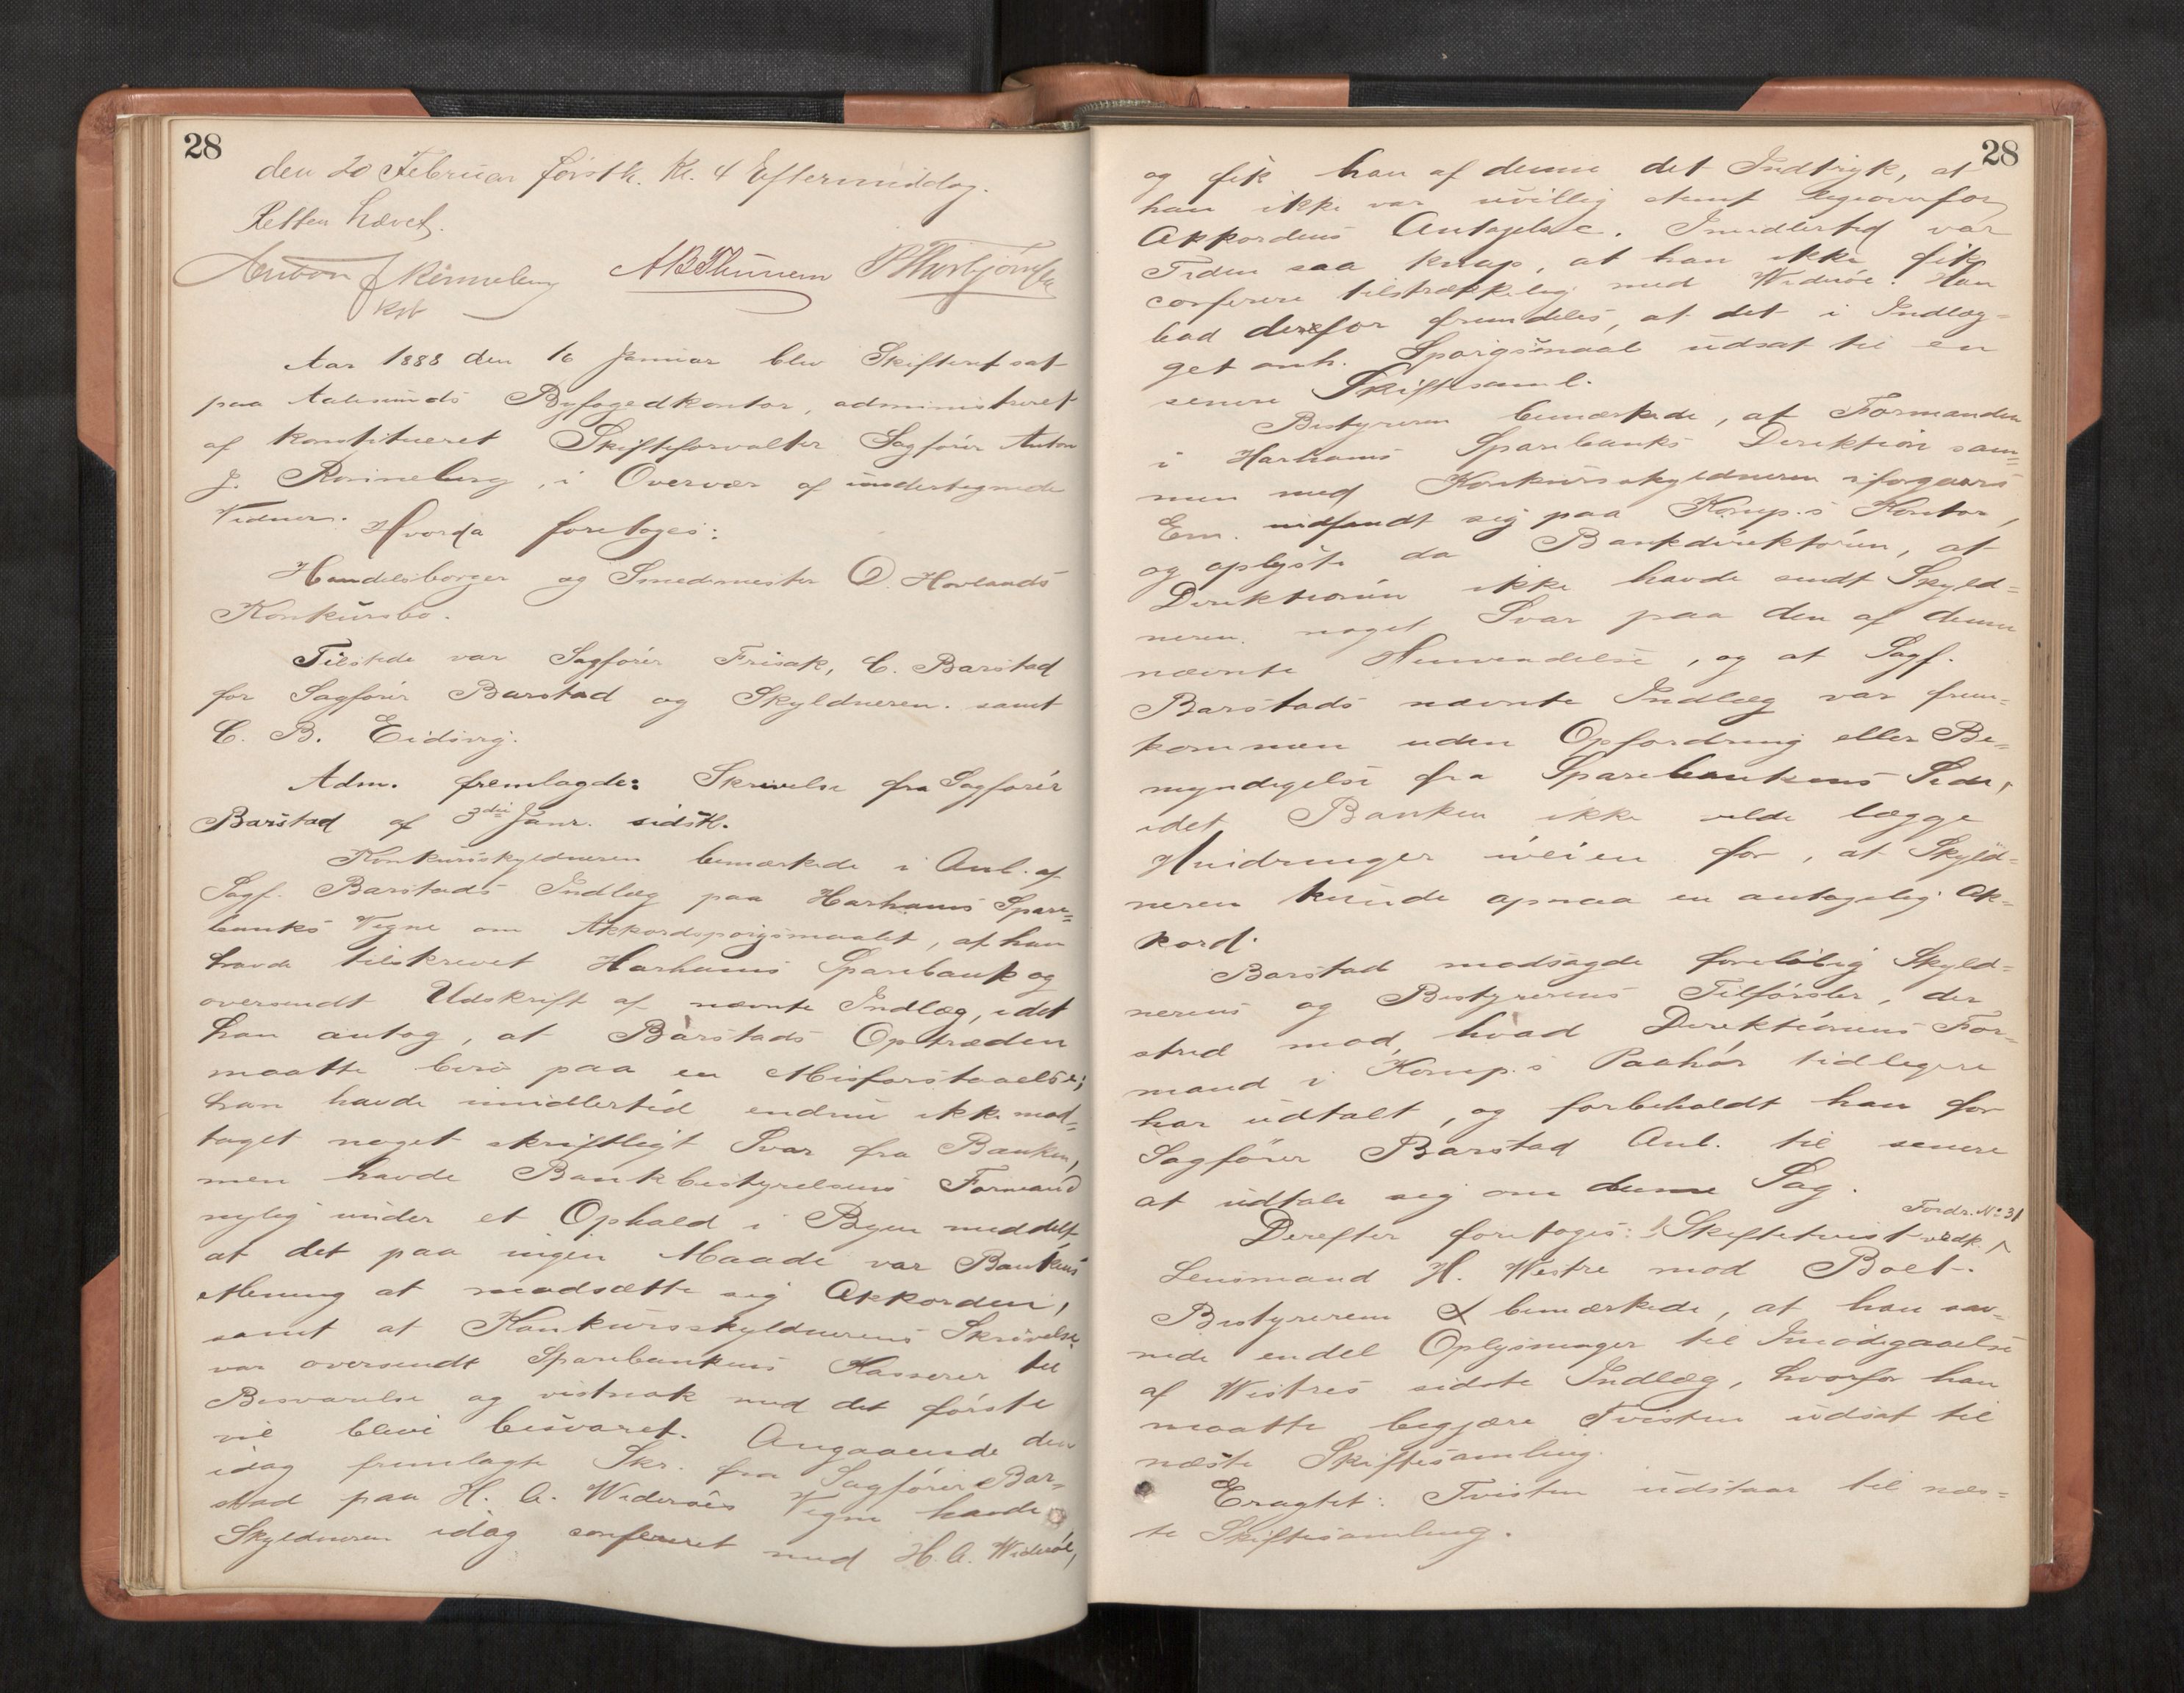 28
den 20 Februar førstk. Kl. 4 Eftermiddag.
Retten hævet.
Anton J Rønneberg
kst
Aar 1888 den 16 Januar blev Skifteret sat
paa Aalesunds Byfogedkontor, administreret
af konstitueret Skifteforvalter Sagfører Anton
J. Rønneberg, i Overvær af undertegnede
Vidner. Hvorda foretoges:
Handelsborger og Smedemester O. Hovlands
Konkursbo.
Tilstede var Sagfører Frisak, C. Barstad
for Sagfører Barstad og Skyldneren. samt
C. B. Eidsvig.
Adm. fremlagde: Skrivelse fra Sagfører
Barstad af 3die Janr. sidstl.
Konkursskyldneren bemærkede i Anl. af
Sagf. Barstads Indlæg paa Harhams Spare=
banks Vegne om Akkordspørgsmaalet, at han
havde tilskrevet Harhams Sparebank og
oversendt Udskrift af nævnte Indlæg, idet
han antog, at Barstads Optræden
maatte bero paa en Misforstaaelse;
han havde imidlertid endnu ikke mod=
taget noget skriftligt Svar fra Banken,
men havde Bankbestyrelsens Formand
nylig under et Ophold i Byen meddelt,
at det paa ingen Maade var Bankens
Mening at modsætte sig Akkorden,
samt at Konkursskyldnerens Skrivelse
var oversendt Sparebankens Kasserer til
Besvarelse og vistnok med det første
vil blive besvaret. Angaaende den
idag fremlagte Skr. fra Sagfører Bar=
stad paa H. A. Widerøes Vegne havde
Skyldneren idag confereret med H. A. Widerøe,
28
og fik han af denne det Indtryk, at
han ikke var uvillig stemt ligeoverfor
Akkordens Antagelse. Imidlertid var
Tiden saa knap, at han ikke fik
conferere tilstrækkelig med Widerøe. Han
bad derfor fremdeles, at det i Indlæg=
get omh. Spørgsmaal udsat til en
senere Skiftesaml.
Bestyreren bemærkede, at Formanden
i Harhams Sparebanks Direktion sam=
men med Konkursskyldneren iforgaars
Em. indfandt sig paa Komp.s Kontor,
og oplyste da Bankdirektøren, at
Direktionen ikke havde sendt Skyld=
neren noget Svar paa den af denne
nævnte Henvendelse, og at Sagf.
Barstads nævnte Indlæg var frem=
kommen uden Opfordring eller Be=
myndigelse fra Sparebankens Side,
idet Banken ikke vilde lægge
Hindringer iveien for, at Skyld=
neren kunde opnaa en antagelig Ak=
kord.
Barstad modsagde foreløbig Skyld=
nerens og Bestyrerens Tilførsler, der
stred mod, hvad Direktionens For=
mand i Komp.s Paahør tidligere
har udtalt, og forbeholdt han for
Sagfører Barstad Anl. til senere
at udtale sig om denne Sag.
Fordr. No 31
Derefter foretoges: Skiftetvist vedk.
Lensmand H. Westre mod Boet.
Bestyreren bemærkede, at han sav=
nede endel Oplysninger til Imødegaaelse
af Westres sidste Indlæg, hvorfor han
maatte begjære Tvisten udsat til
næste Skiftesamling.
Eragtet: Tvisten udstaar til næs=
te Skiftesamling.